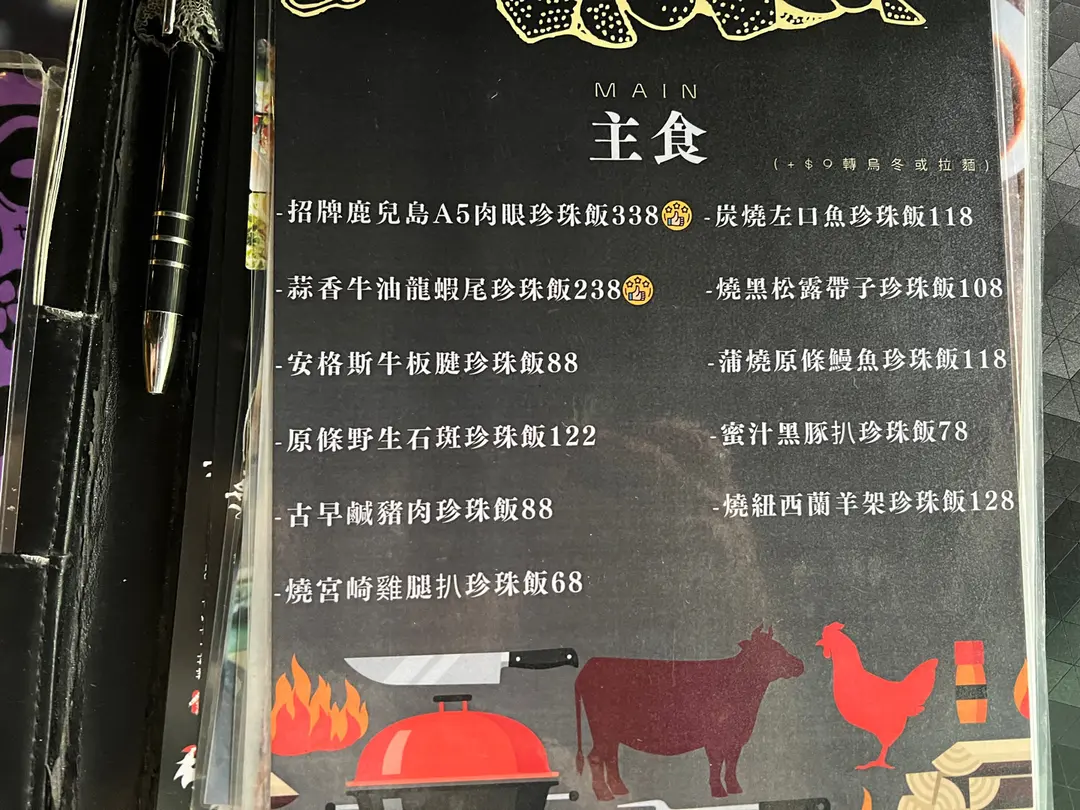 MAIN
主食
(+$9轉烏冬或拉麵)
-招牌鹿兒島A5肉眼珍珠飯338
-蒜香牛油龍蝦尾珍珠飯238
-安格斯牛板腱珍珠飯88
-原條野生石斑珍珠飯122
-古早鹹豬肉珍珠飯88
-燒宮崎雞腿扒珍珠飯68
-炭燒左口魚珍珠飯118
-燒黑松露帶子珍珠飯108
-蒲燒原條鰻魚珍珠飯118
-蜜汁黑豚扒珍珠飯78
-燒紐西蘭羊架珍珠飯128